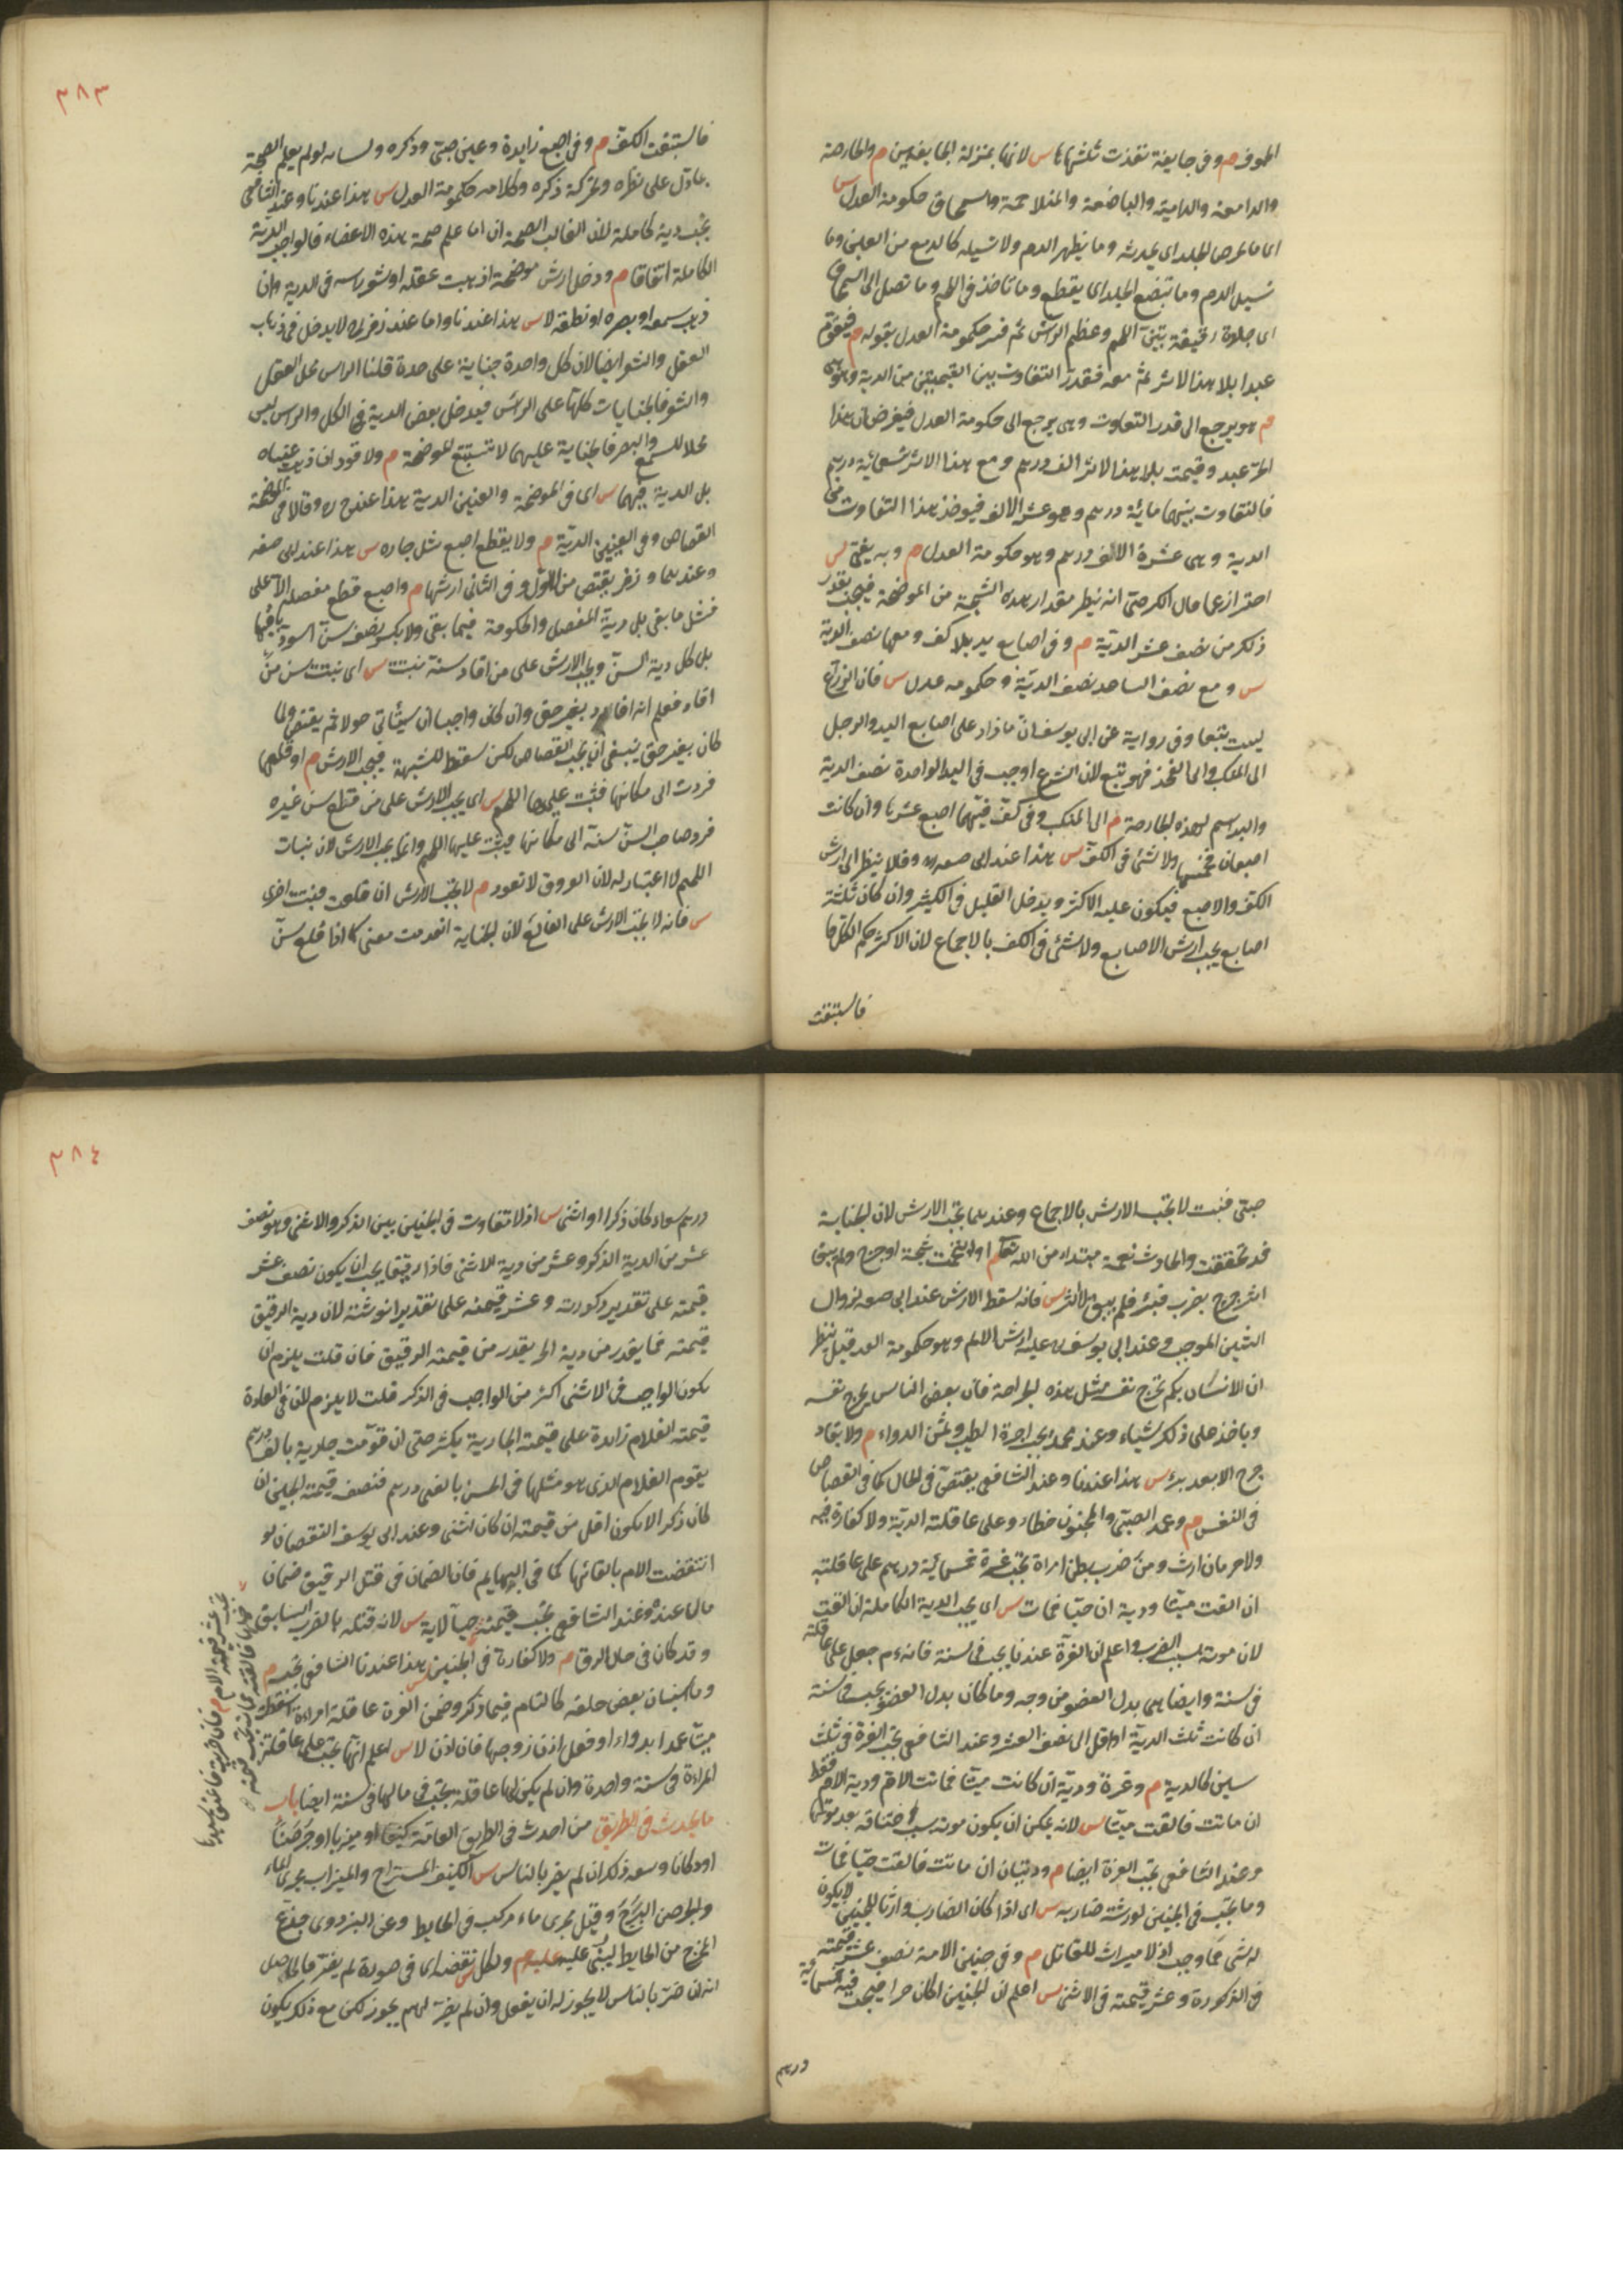 الجوف م وفى جايفة نفذت ثلثاها س لانها بمنزلة الجايفتين م والحارصة
والدامعة والدامية والباضعة والمتلاحمة والسمحاق حكومة العدل س
اى ما تحرص الجلد اى تخدشه وما يظهر الدم ولا تسيله كالدمع من العين وما
تسيل الدم وما تبضع الجلد اى يقطع وما تاخذ فى اللحم وما تصل الى السمحاق
اى جلدة رقيقة بين اللحم وعظم الراس ثم فسر حكومة العدل بقوله م فيقوم
عبدا بلا هذا الاثر ثم معه فقدر التفاوت بين القيمتين من الدية وهو هى
م هو يرجع الى قدر التفاوت وهى يرجع الى حكومة العدل فيفرض ان هذا
الحر عبد وقيمته بلا هذا الاثر الف درهم ومع هذا الاثر تسعمائة درهم
فالتفاوت بينهما مائة درهم وهو عشر الالف فيوخذ هذا التفاوت من
الدية وهى عشرة الاف درهم وهو حكومة العدل م وبه يفتى س
احتراز عما قال الكرخى انه ينظر مقدار هذه الشجة من الموضحة فيجب بقدر
ذلك من نصف عشر الدية م وفى اصابع يد بلا كف ومعها نصف الدية
س ومع نصف الساعد نصف الدية وحكومة عدل س فان الذراع
ليست بتبعا وفى رواية عن ابى يوسف ان ما زاد على اصابع اليد والرجل
الى المنكب والى الفخذ فهو تبع لان الشرع اوجب فى اليد الواحدة نصف الدية
واليد اسم لهذه الجارحة م الى المنكب وفى كف فيها اصبع عشرها وان كانت
اصبعان فخمسها ولا شئ فى الكف س هذا عند ابى حنيفة وقالا ينظر الى ارش
الكف والاصبع فيكون عليه الاكثر ويدخل القليل فى الكثير وان كان ثلثة
اصابع يجب ارش الاصابع ولا شئ فى الكف بالاجماع لان الاكثر حكم الكل
فاستتبعت
٣٨٣
فاستتبعت الكف م وفى اصبع زايدة وعين صبى وذكره ولسانه لو لم يعلم الصحة
بما دل على نظره وتحركة ذكره وكلامه حكومة العدل س هذا عندنا وعند الشافعى
يجب دية كاملة لان الغالب الصحة ان اما علم صحة هذه الاعضاء فالواجب الدية
الكاملة اتفاقا م ودخل ارش موضحة اذهبت عقله او شعر راسه فى الدية وان
ذهب سمعه او بصره او نطقه لا س هذا عندنا واما عند زفر لا يدخل فى ذهاب
العقل والشعر ايضا لان كل واحدة جناية على حدة قلنا الراس محل العقل
والشعر فالجنايات كلها على الراس فيدخل بعض الدية فى الكل والراس ليس
محلا للسمع والبصر فالجناية عليهما لا تستتبع الموضحة م ولا قود ان ذهبت عيناه
بل الدية فيهما س اى فى الموضحة والعينين الدية هذا عند ح وقالا فى الموضحة
القصاص وفى العينين الدية م ولا يقطع اصبع شل جاره س هذا عند ابى حنيفة
وعندهما وزفر يقتص من الاول وفى الثانى ارشها م واصبع قطع مفصله الاعلى
فشل ما بقى بل دية المفصل والحكومة فيما بقى ولا بكسر نصف سن اسود باقيها
بل كل دية السن ويجب الارش على من اقاد سنه نبتت س اى نبتت سن من
اقاد فعلم انه اقاد بغير حق وان كان واجبا ان يستانى حولا ثم يقتص ولما
كان بغير حق ينبغى ان يجب القصاص لكن سقط للشبهة فيجب الارش م او قلعها
فردت الى مكانها فنبت عليها اللحم س اى يجب الارش على من قلع سن غيره
فرد صاحب السن سنه الى مكانها فينبت عليها اللحم وانما يجب الارش لان نبات
اللحم لا اعتبار له لان العروق لا تعود م لا يجب الارش ان قلعت فنبت اخرى
س فانه لا يجب الارش على القالع لان الجناية انعدمت معنى كما اذا قلع سن
صبى فنبت لا يجب الارش بالاجماع وعندهما يجب الارش لان الجناية
قد تحققت والحادث نعمة مبتداة من الله تعالى م او التحمت شجة او جرح ولم يبق
اثر جرح بضرب فبرئ فلم يبق الاثر س فانه سقط الارش عند ابى حنيفة لزوال
الشين الموجب وعند ابى يوسف عليه ارش الالم وهو حكومة العدل قيل ينظر
ان الانسان بكم تجرح نفسه مثل هذه الجراحة فان بعض الناس يجرح نفسه
وياخذ على ذلك شياء وعند محمد يجب اجرة الطبيب وثمن الدواء م ولا يقاد
جرح الا بعد برء س هذا عندنا وعند الشافعى يقتص فى الحال كما فى القصاص
فى النفس م وعمد الصبى والمجنون خطاء وعلى عاقلته الدية ولا كفارة فيه
ولا حرمان ارث ومن ضرب بطن امراة تجب غرة خمسمائة درهم على عاقلته
ان القت ميتا ودية ان حيا فمات س اى يجب الدية الكاملة ان القت
لان موته بسبب الضرب واعلم ان الغرة عندنا يجب فى سنة فانه م جعل على عاقلته
فى سنة وايضا هى بدل العضو من وجه وما كان بدل العضو يجب فى سنة
ان كانت ثلث الدية او اقل الى نصف العشر وعند الشافعى يجب الغرة فى ثلث
سنين كالدية م وغرة ودية ان كانت ميتا فماتت الام ودية الام فقط
ان ماتت فالقت ميتا س لانه يمكن ان يكون موته بسبب اختناقه بعد موتها
وعند الشافعى يجب الغرة ايضا م وديتان ان ماتت فالقت حيا فمات
وما يجب فى الجنين لورثته سوى ضاربه س اى اذا كان الضارب وارثا للجنين لا يكون
له شئ مما وجب اذ لا ميراث للقاتل م وفى جنين الامة نصف عشر قيمته
فى الذكورة وعشر قيمته فى الانثى س اعلم ان الجنين اذا كان حرا فيجب فيه خمسمائة
درهم
٣٨٤
درهم سواء كان ذكرا او انثى س اذ لا تفاوت فى الجنين بين الذكر والانثى وهو نصف
عشر من الدية الذكر وعشر من دية الانثى فاذا رقيقا يجب ان يكون نصف عشر
قيمته على تقدير ذكورته وعشر قيمته على تقدير انوثته لان دية الرقيق
قيمته فما يقدر من دية الحر يقدر من قيمته الرقيق فان قلت يلزم ان
يكون الواجب فى الانثى اكثر من الواجب فى الذكر قلت لا يلزم لان فى العادة
قيمته الغلام زايدة على قيمته الجارية بكثير حتى ان قومت جارية بالف درهم
يقوم الغلام الذى هو مثلها فى الحسن بالفى درهم فنصف قيمة الجنين ان
كان ذكرا لا يكون اقل من قيمته ان كان انثى وعند ابى يوسف النقصان لو
انتقضت الام بالقائها كما فى البهايم فان الضمان فى قتل الرقيق ضمان
مال عنده وعند الشافعى يجب قيمته حيا لا دية س لانه قتله بالضرب السابق
وقد كان فى حال الرق م ولا كفارة فى الجنين س هذا عندنا الشافعى تجب م
وما استبان بعض خلقه كالتام فيما ذكر وضمن الغرة عاقلة امراة اسقطت
ميتا عمدا بدواء او فعل بلا اذن زوجها فان اذن لا س اعلم انها يجب على عاقلة
المراة فى سنة واحدة وان لم يكن لها عاقلة يجب فى مالها فى سنة ايضا باب
ما يحدث فى الطريق من احدث فى الطريق العامة كنيفا او ميزابا او جرصنا
او دكانا وسعه ذلك ان لم يضر بالناس س الكنيف المستراح والميزاب مجرى الماء
والجرصن البرج وقيل مجرى ماء مركب فى الحايط وعن البزدوى جذع
يخرج من الحايط ليبنى عليه م ولكل نقضه س اى فى صورة لم يضر فالحاصل
انه ان ضر بالناس لا يجوز له ان يفعل وان لم يضر لهم يجوز لكن مع ذلك يكون